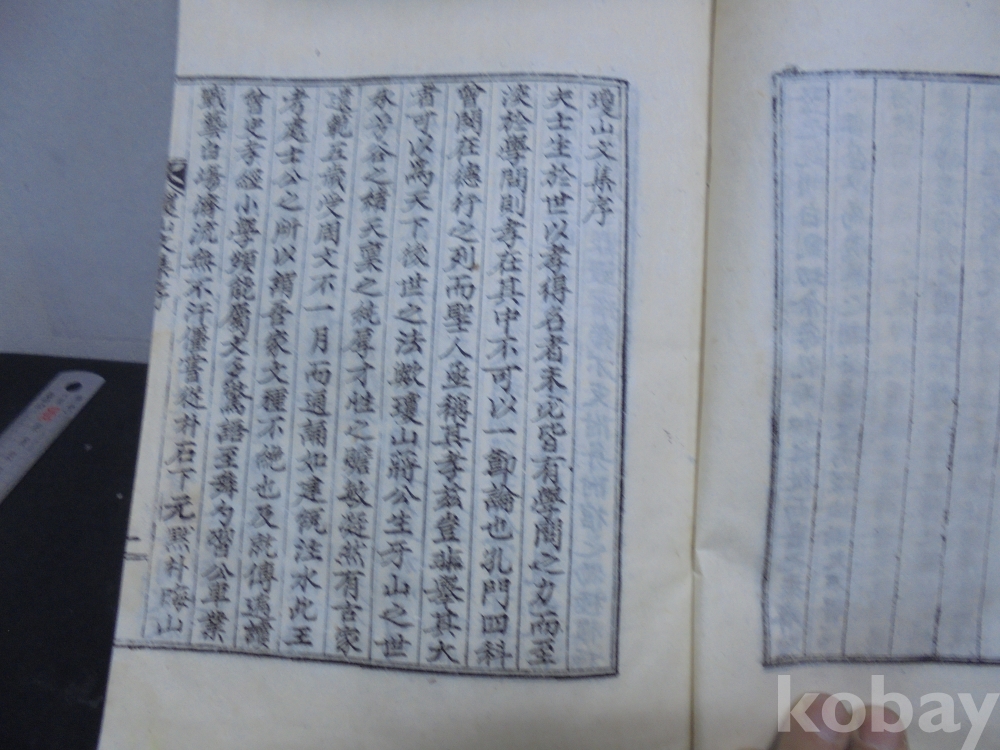 瓊山文集序
夫士生於世以孝得名者未必皆有學問之力而至
於學問則孝在其中不可以一節論也孔門四科
曾閔在德行之列而聖人亟稱其孝玆豈非擧其大
者可以爲天下後世之法歟瓊山蔣公生牙山之世
承芳谷之緖天稟之純厚才性之贍敏遊然有古家
遺範五歲受周文不一月而通誦如建瓴注水此王
考處士公之所以稱吾家文種不絶也及就傅遍讀
曾史孝經小學頌能屬文多驚語至舞勺習公車業
戰藝白場濟流無不汗僵嘗從朴石下元煕朴海山
瓊山文集序
一
kobay